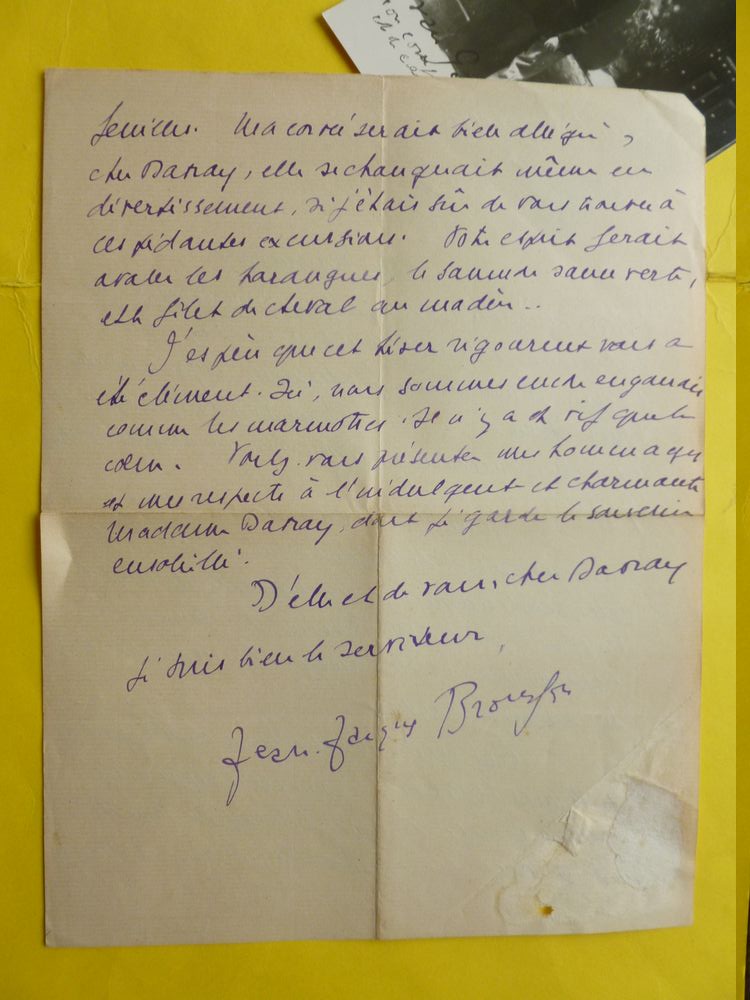 feuilles. Ma corvée serait bien allégée,
cher Davray, elle se changerait même en
divertissement, si j'étais sûr de vous trouver à
ces pédantes excursions. Votre esprit ferait
avaler les harangues, le saumon sauce verte,
et le filet de cheval au madère..
J'espère que cet hiver rigoureux vous a
été clément. Ici, nous sommes encore engourdis
comme les marmottes. Il n'y a de vif que le
cœur. Voulez-vous présenter mes hommages
et mes respects à l'indulgente et charmante
Madame Davray, dont je garde le souvenir
ensoleillé.
D'elle et de vous, cher Davray
je suis bien le serviteur,
Jean-Jacques Brousson